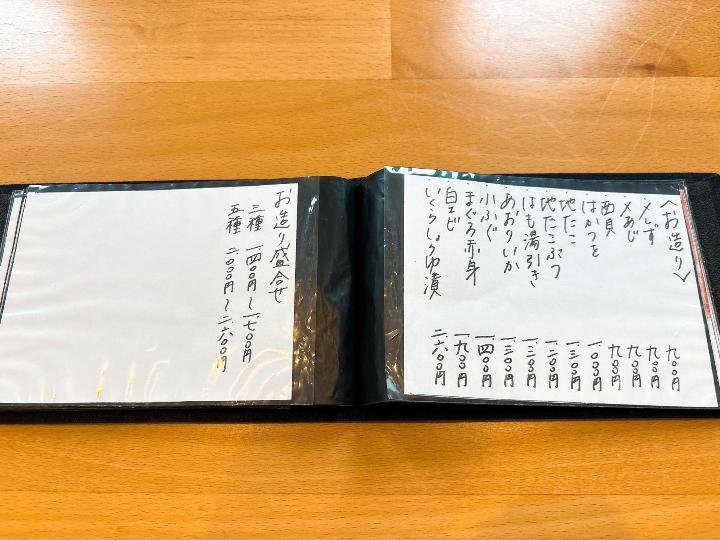 〈お造り〉
〆しず 九〇〇円
〆あじ 九〇〇円
西貝 九〇〇円
はかつを 九〇〇円
地たこ 一、〇〇〇円
地たこぶつ 一、三〇〇円
はも湯引き 一、二〇〇円
あおりいか 一、三〇〇円
小ふぐ 一、三〇〇円
まぐろ赤身 一、四〇〇円
白エビ 一、九〇〇円
いくらしょうゆ漬 二、六〇〇円
お造り盛合せ
三種 一、四〇〇円〜一、七〇〇円
五種 二、〇〇〇円〜二、六〇〇円